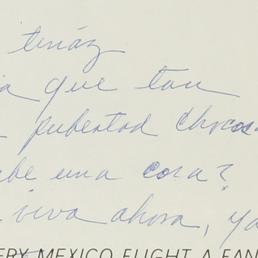 tenáz
a que tan
pubertad chocos-
be una cosa?
viva ahora, ya
ERY MEXICO FLIGHT A FAN